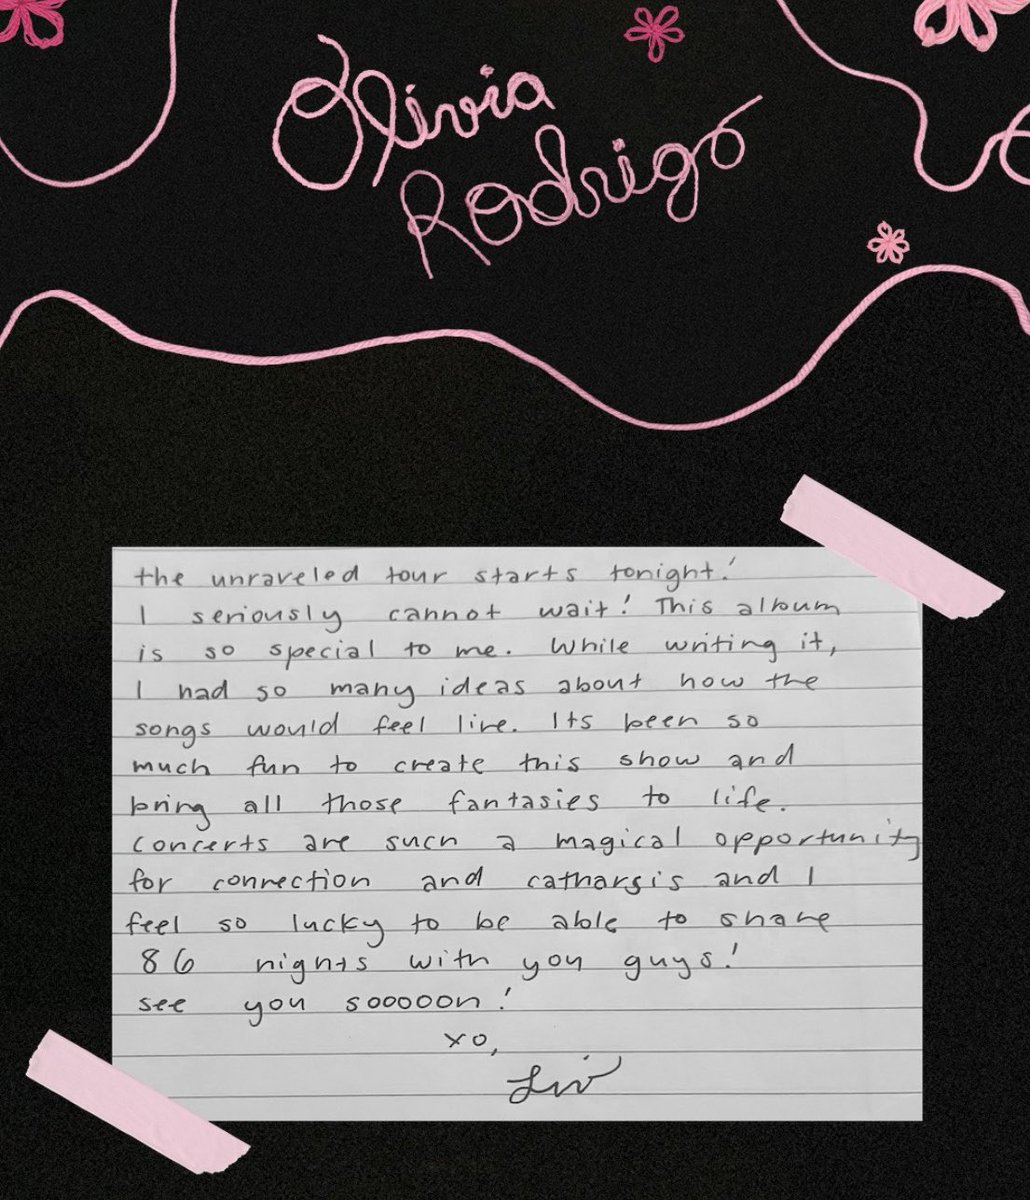 Olivia
Rodrigo
the unraveled tour starts tonight!
I seriously cannot wait! This album
is so special to me. While writing it,
I had so many ideas about how the
songs would feel live. Its been so
much fun to create this show and
bring all those fantasies to life.
concerts are such a magical opportunity
for connection and catharsis and I
feel so lucky to be able to share
86 nights with you guys!
see you sooooon!
xo,
Liv